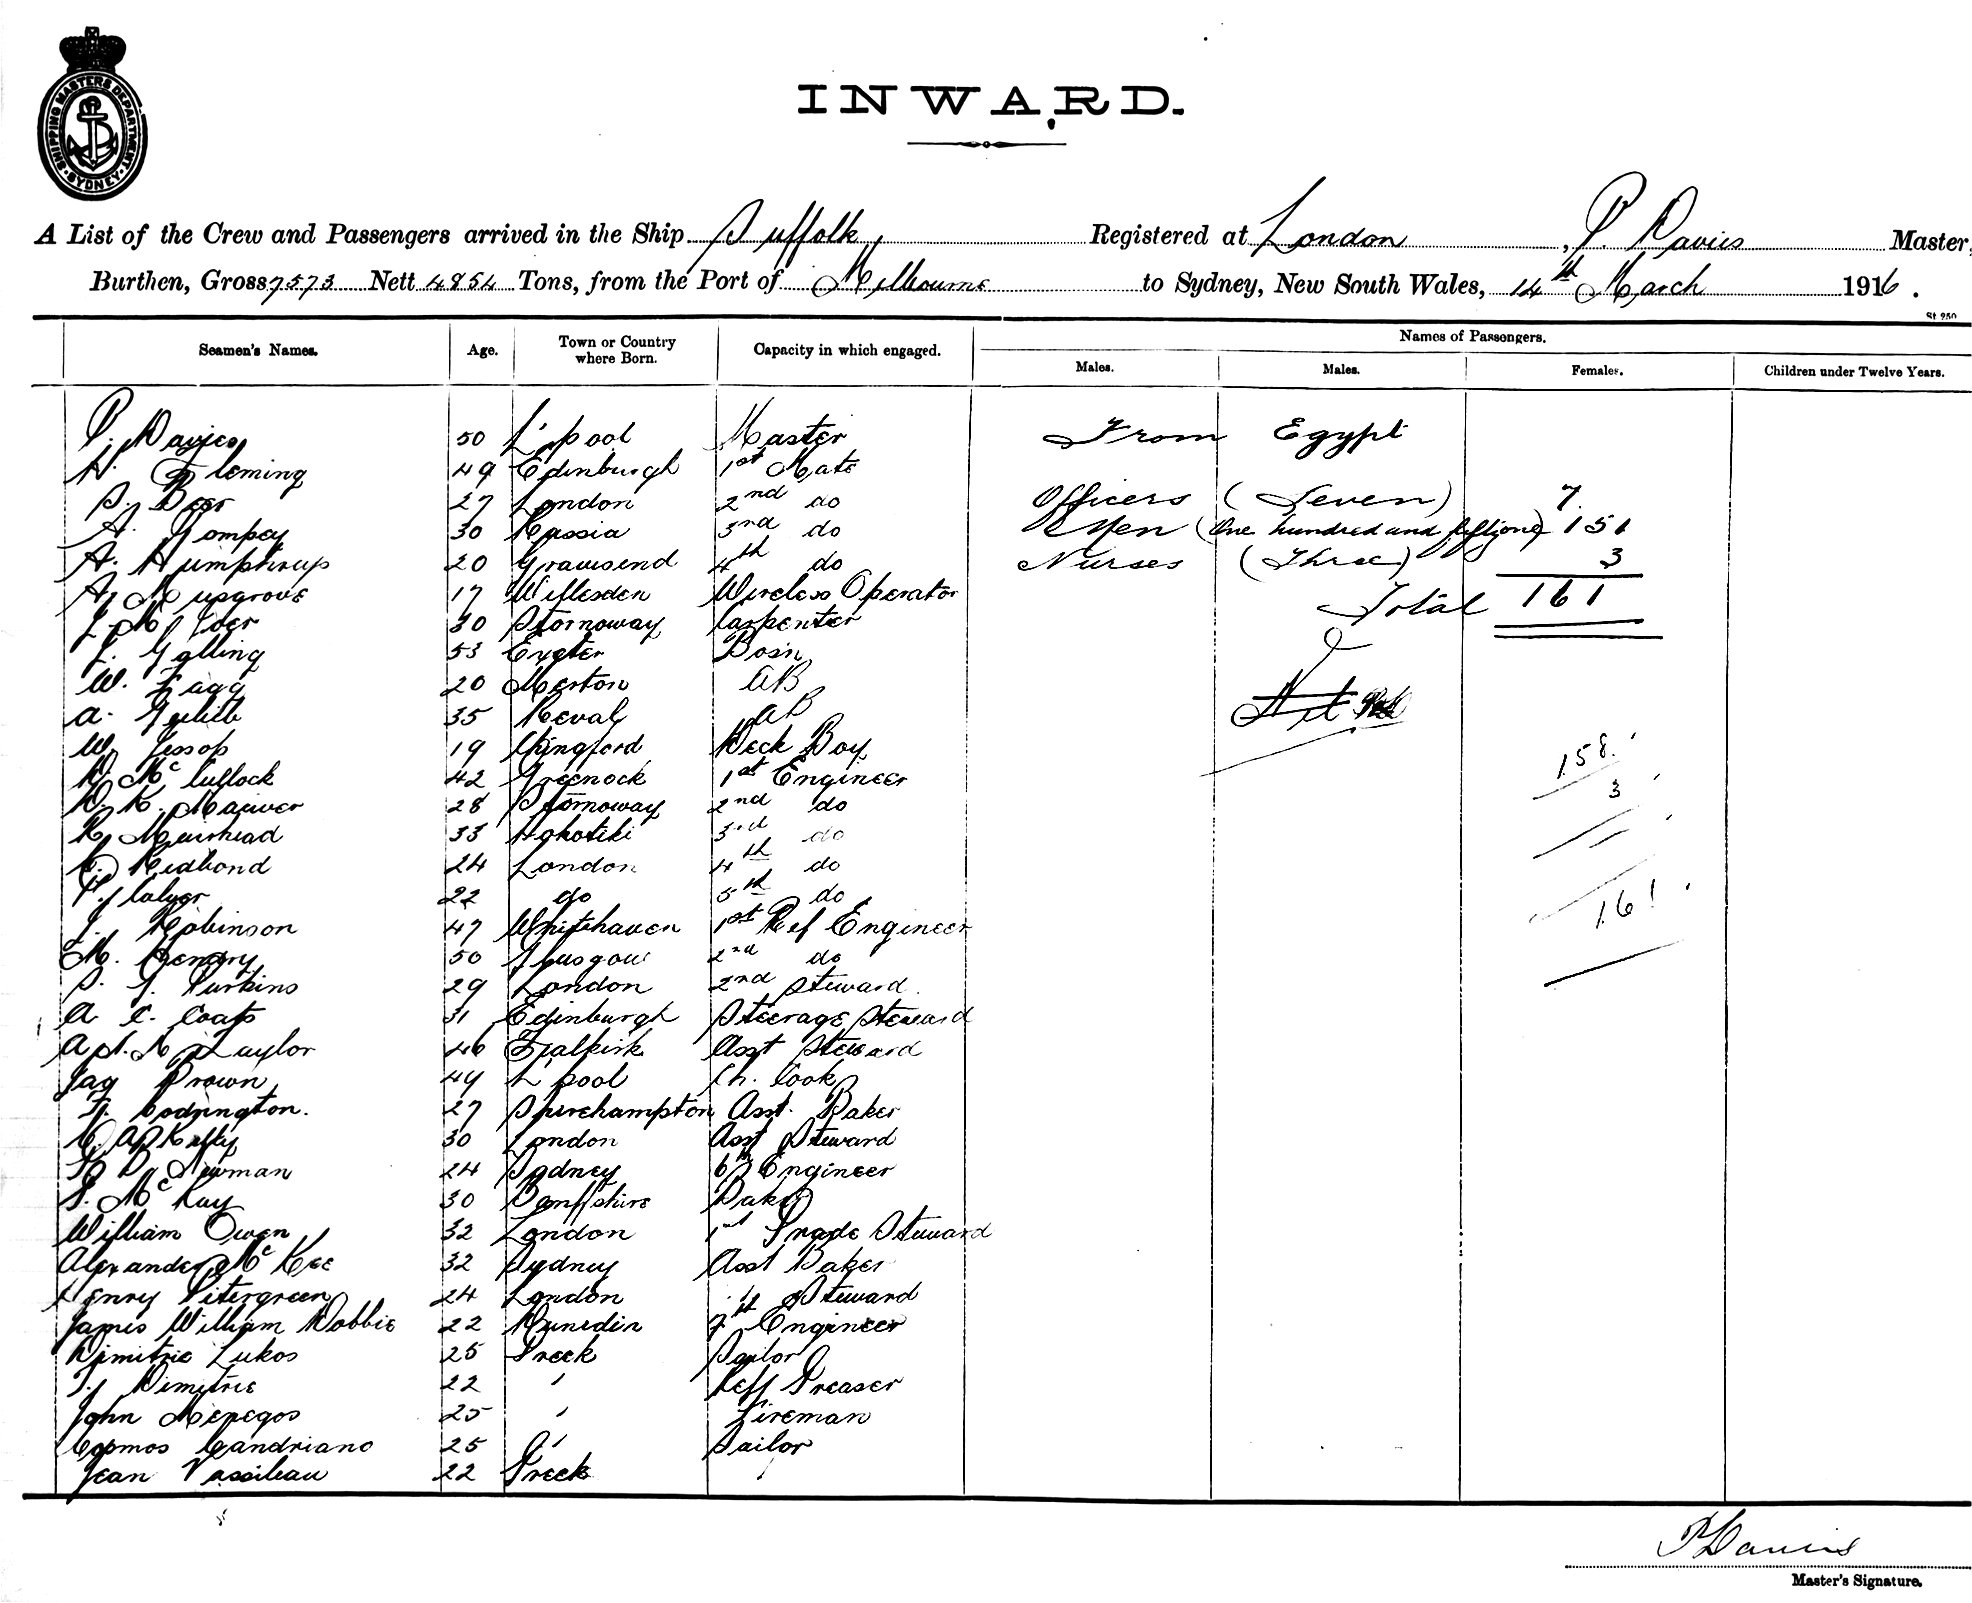 SHIPPING MASTERS DEPARTMENT
SYDNEY
INWARD.
A List of the Crew and Passengers arrived in the Ship Suffolk Registered at London, P. Davies Master,
Burthen, Gross 7573 Nett 4854 Tons, from the Port of Melbourne to Sydney, New South Wales, 14th March 1916.
St 250
Seamen's Names. Age. Town or Country where Born. Capacity in which engaged. Names of Passengers.
Males. Males. Females. Children under Twelve Years.
P. Davies 50 L'pool Master From Egypt
H. Fleming 49 Edinburgh 1st Mate
S. Deer 27 London 2nd do Officers (Seven) 7
A. Pompey 30 Russia 3rd do Men (One hundred and fiftyone) 151
A. Humphrys 20 Gravesend 4th do Nurses (Three) 3
A. Musgrove 17 Willesden Wireless Operator Total 161
30 Stornoway Carpenter
53 Exeter Bosn
W. Fagg 20 Merton AB
A. 35 Reval AB
W. Jessop 19 Chingford Deck Boy 158
D. McCullock 42 Greenock 1st Engineer 3
D. K. Maciver 28 Stornoway 2nd do
R. Muirhead 33 3rd do
Redbond 24 London 4th do
P. Calver 22 do 5th do 161
J. Robinson 47 Whitehaven 1st Ref Engineer
M. 50 Glasgow 2nd do
S. J. Perkins 29 London 2nd Steward
A. C. Coats 31 Edinburgh Steerage Steward
Taylor 46 Falkirk Asst Steward
Jas Brown 49 L'pool Ch. Cook
Codrington. 27 Shirehampton Asst. Baker
30 London Asst Steward
Newman 24 Sydney 6th Engineer
S. McKay 30 Banffshire Baker
William Owen 32 London 1st Grade Steward
Alexander McKee 32 Sydney Asst Baker
Henry Petergreen 24 London " Steward
James William Dobbie 22 Dunedin 7th Engineer
Dimitrie Lukos 25 Greek Sailor
Dimitrie 22 " Reff Greaser
John Menegos 25 " Fireman
Cosmos Candriano 25 " Sailor
Jean Vassileau 22 Greek "
P Davies
Master's Signature.